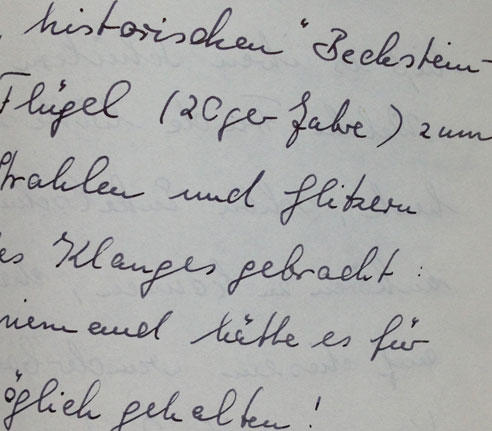 , historischen " Bechstein-
Flügel (20ger Jahre) zum
Strahlen und Glitzern
es Klanges gebracht:
niemand hätte es für
öglich gehalten!